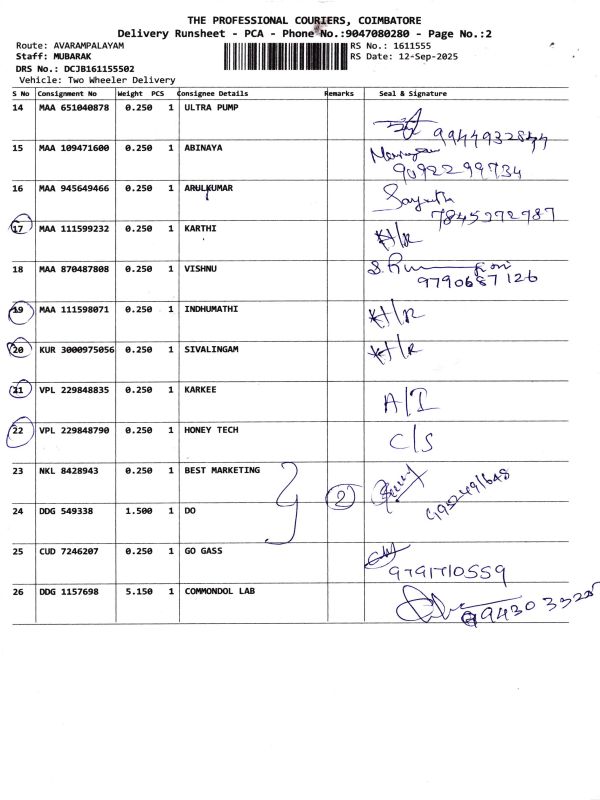 THE PROFESSIONAL COURIERS, COIMBATORE
Delivery Runsheet - PCA - Phone No.:9047080280 - Page No.:2
Route: AVARAMPALAYAM RS No.: 1611555
Staff: MUBARAK RS Date: 12-Sep-2025
DRS No.: DCJB161155502
Vehicle: Two Wheeler Delivery
S No Consignment No Weight PCS Consignee Details Remarks Seal & Signature
14 MAA 651040878 0.250 1 ULTRA PUMP
15 MAA 109471600 0.250 1 ABINAYA
9092299734
16 MAA 945649466 0.250 1 ARULKUMAR
7845272787
17 MAA 111599232 0.250 1 KARTHI
18 MAA 870487808 0.250 1 VISHNU
9790687126
19 MAA 111598071 0.250 1 INDHUMATHI
20 KUR 3000975056 0.250 1 SIVALINGAM
21 VPL 229848835 0.250 1 KARKEE A/I
22 VPL 229848790 0.250 1 HONEY TECH C/S
23 NKL 8428943 0.250 1 BEST MARKETING
2
24 DDG 549338 1.500 1 DO
25 CUD 7246207 0.250 1 GO GASS
9791710559
26 DDG 1157698 5.150 1 COMMONDOL LAB